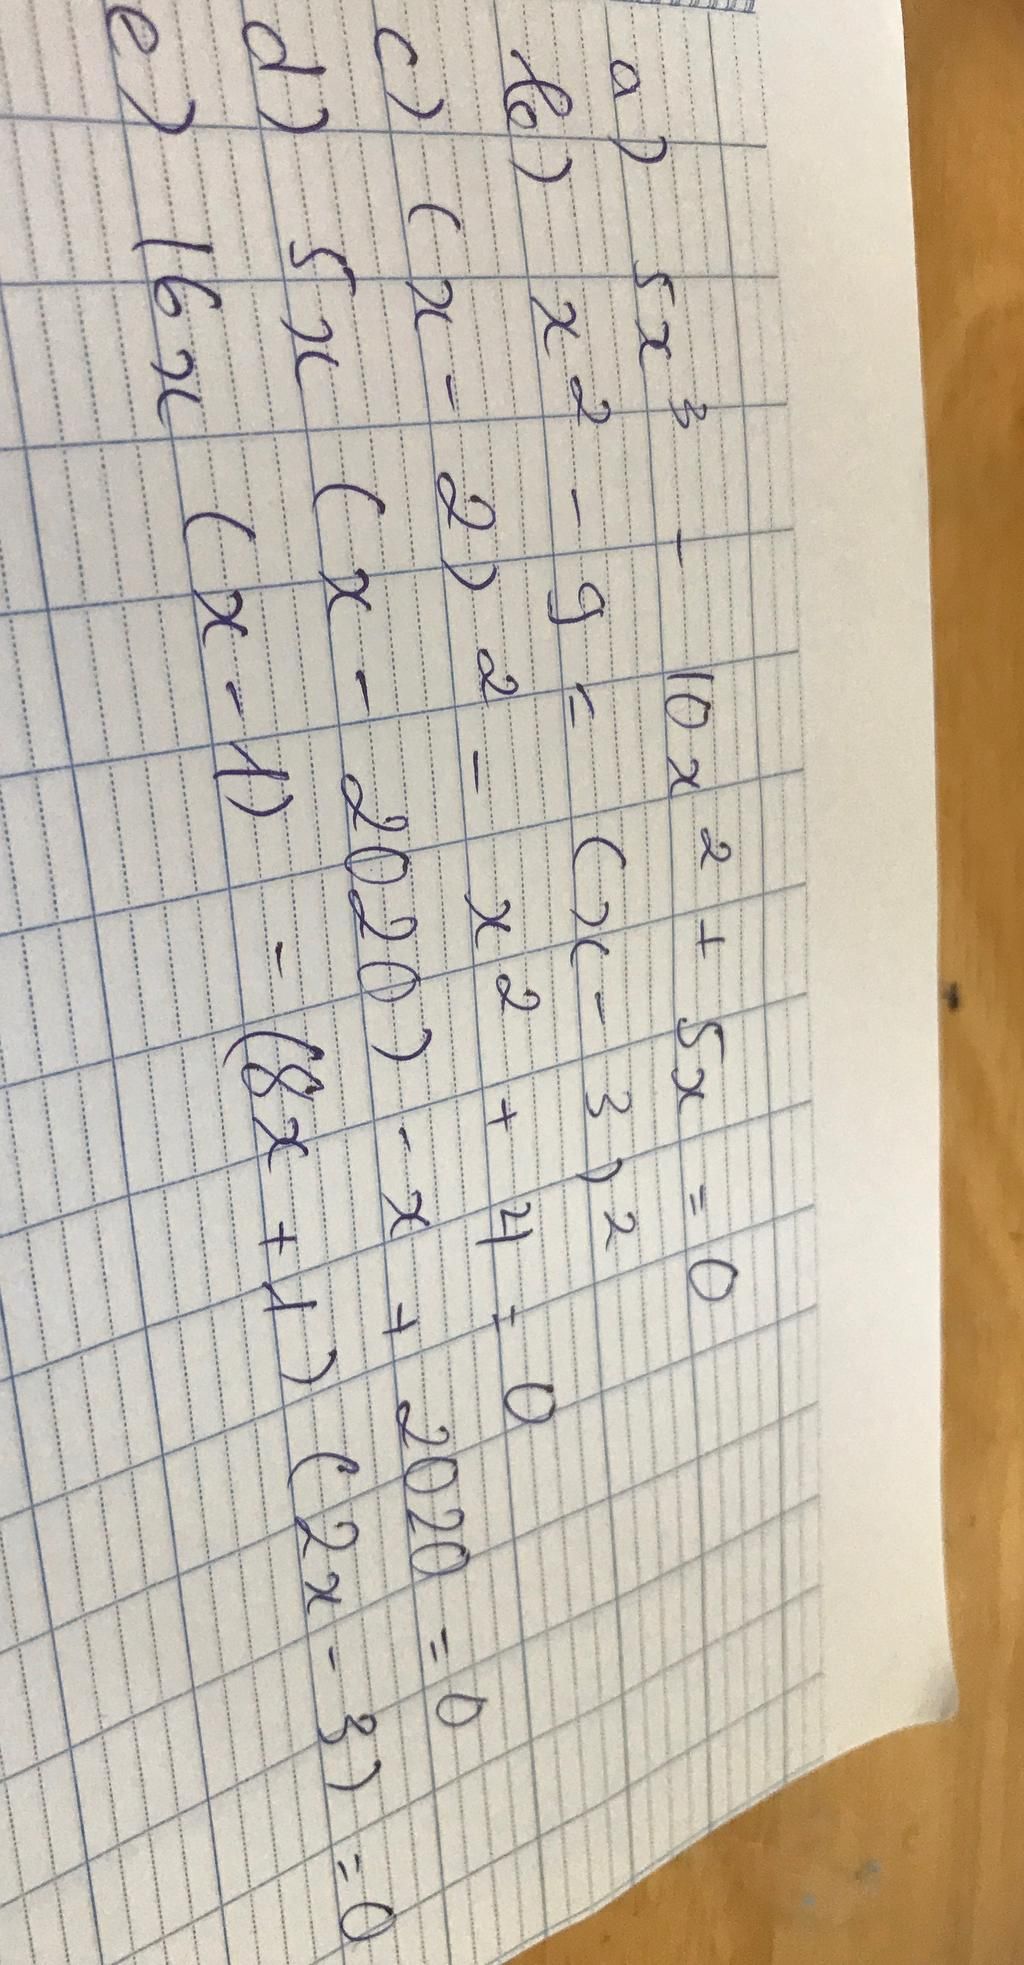 a) 5x³ - 10x² + 5x = 0
b) x² - 9 = (x - 3)²
c) (x - 2)² - x² + 4 = 0
d) 5x (x - 2020) - x + 2020 = 0
e) 16x (x - 1) - (8x + 1) (2x - 3) = 0